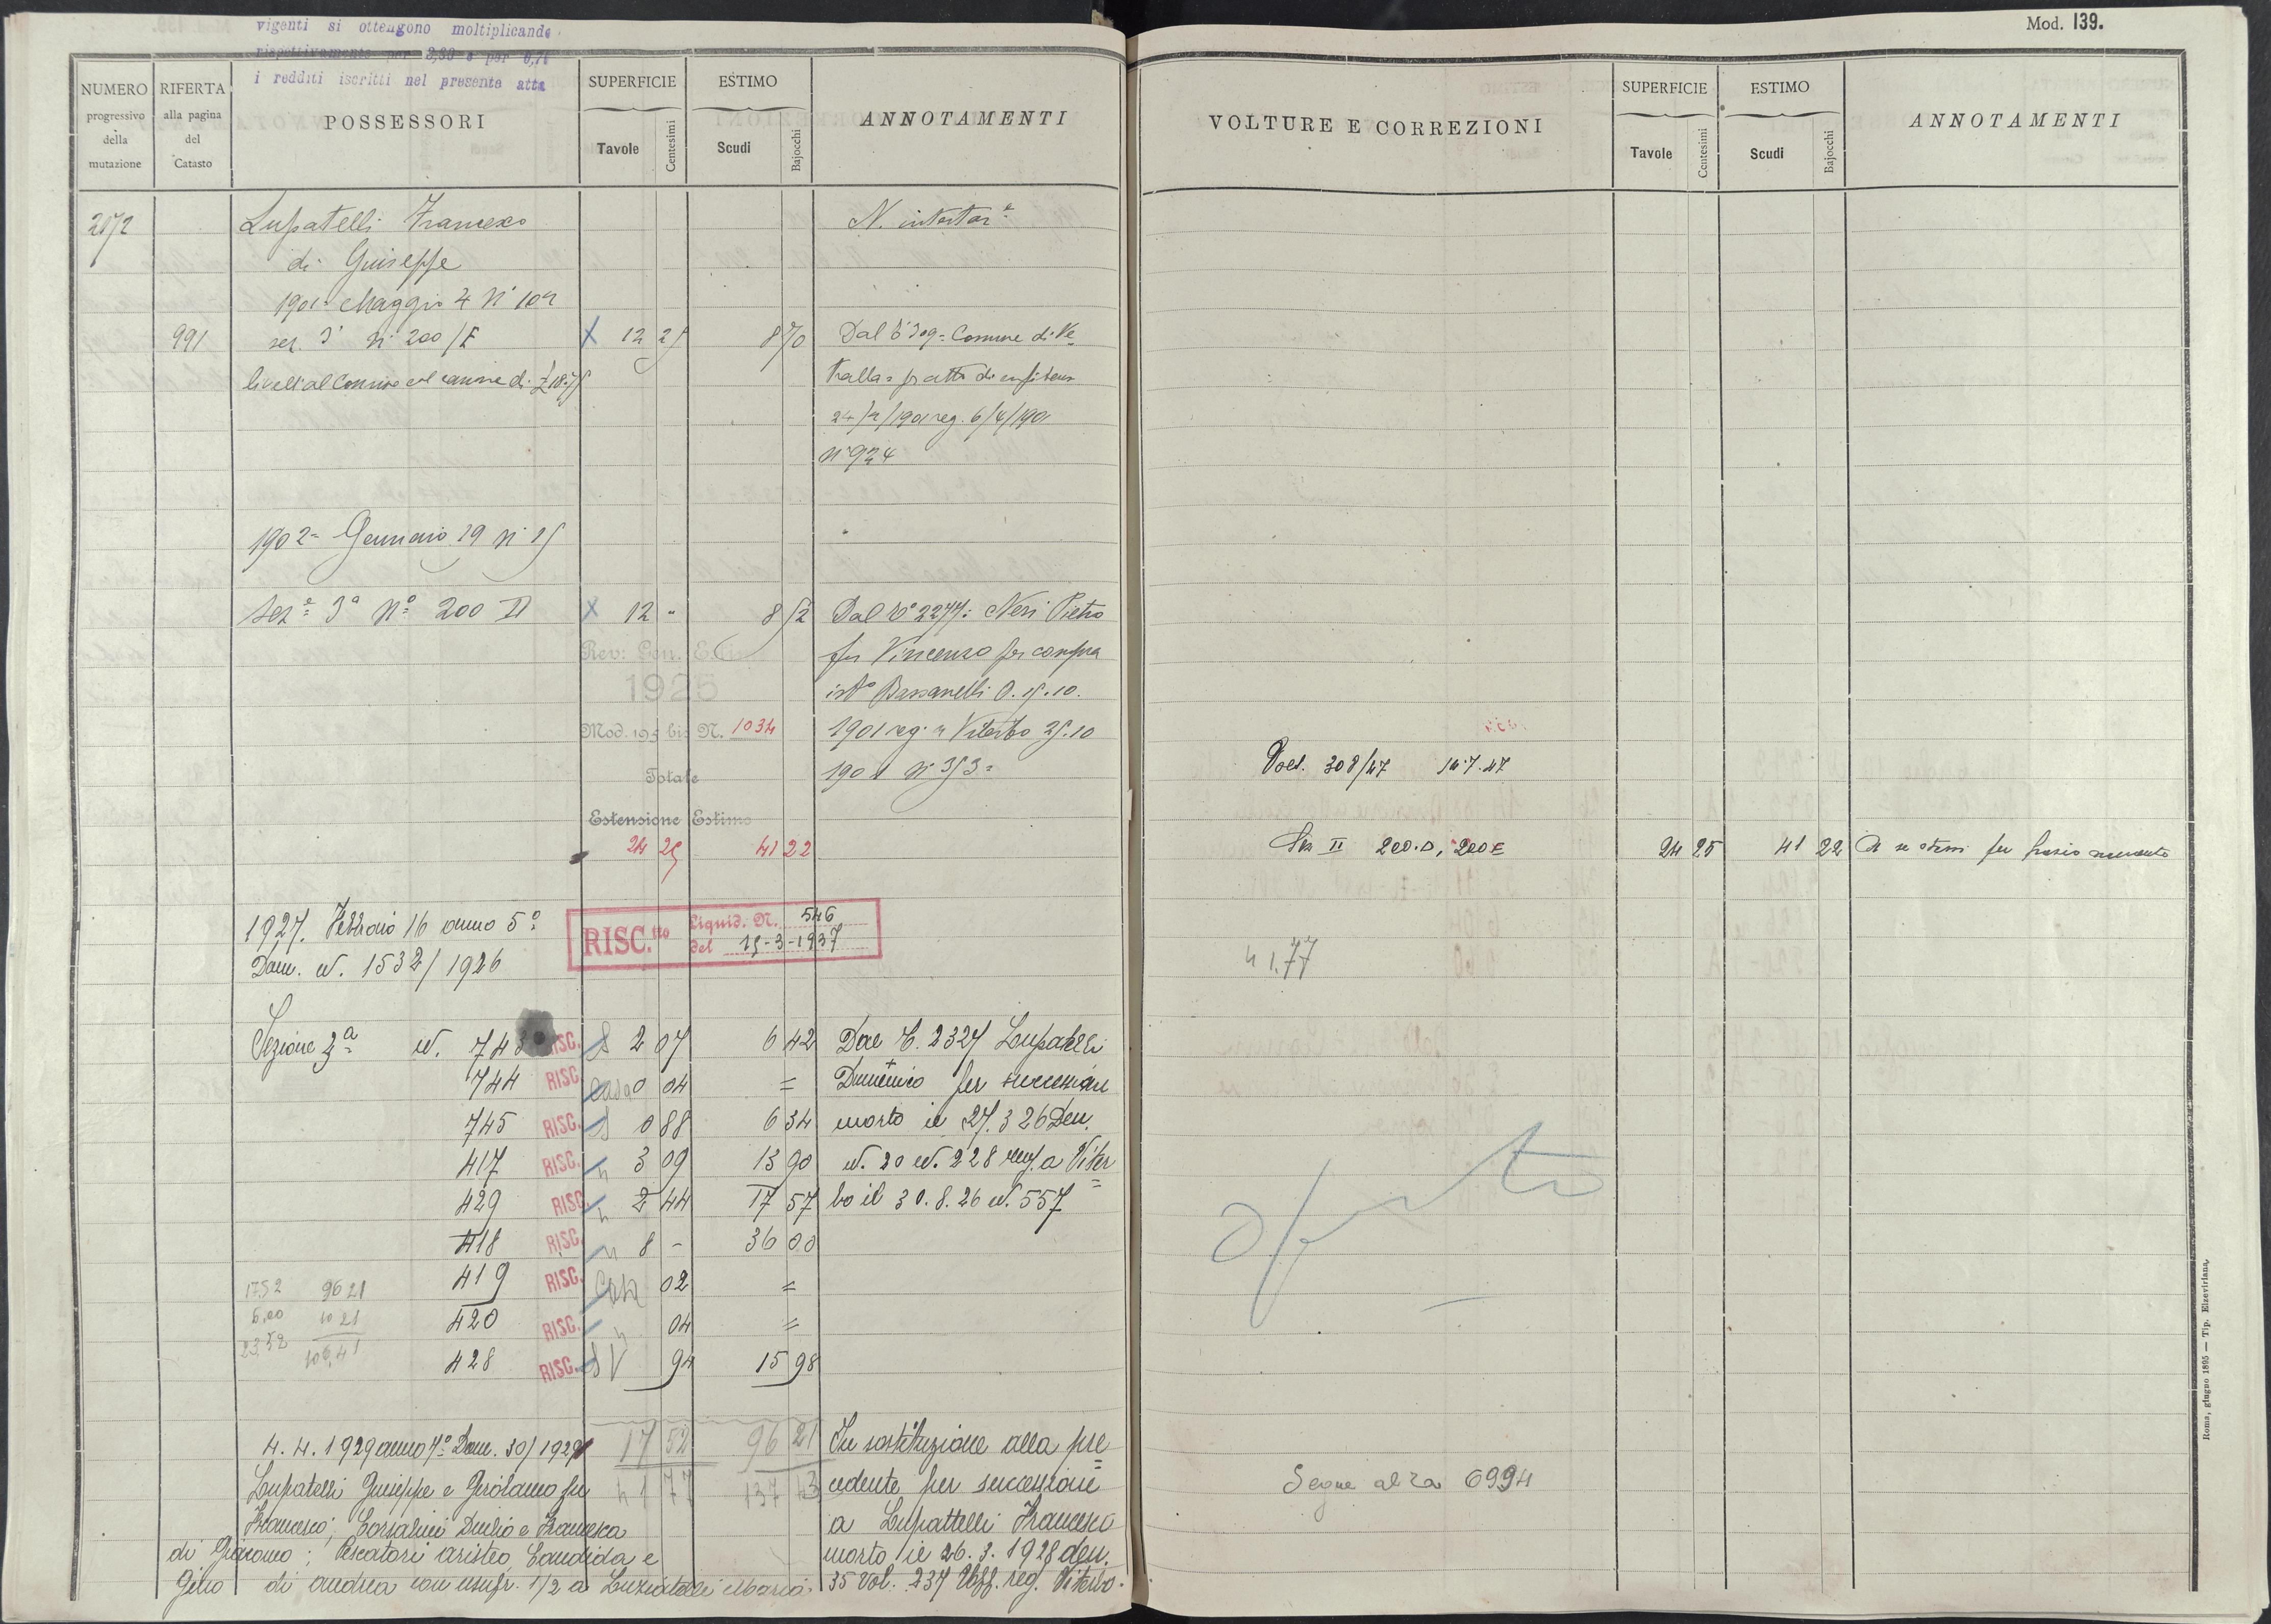 viganti si ottengono moltiplicando
rispettivamente per
i redditi iscritti nel presente atto
NUMERO progressivo della mutazione
RIFERTA alla pagina del Catasto
POSSESSORI
SUPERFICIE Tavole Centesimi
ESTIMO Scudi Bajocchi
ANNOTAMENTI
Lupatelli Francesco N. intestaz.e
di Giuseppe
1901 Maggio 4 N°
991 sez. 3° N° 200/E X 12 25 8 70 Dal Comune di Ve
livell. al Comune col canone di tralla
24/ /1901 reg. 6/4/1901
1902= Gennaio 29 N°
Sez.e 3a N° 200 D X 12 - 8 52 Dal 2277: Neri Pietro
Rev: Gen. Estimi fu Vincenzo per compra
1925 isto Bassanelli O.
Mod. 195 bis N. 1034 1901 reg. a Viterbo 25.10
Totale 1901 N° 353=
Estensione Estimo
24 25 41 22
1927. Febbraio 16 anno 5°
Dom. N. 1532/1926
RISC.tto Liquid. N. 546
del 15-3-1937
Sezione 3a N. 743 RISC. S 2 07 6 42 Dal 2327 Lupatelli
744 RISC. casa 0 04 = Domenico per successione
745 RISC. S 0 88 6 34 morto il 27.3 26 Den.
417 RISC. " 3 09 13 90 N. 20 N. 228 reg. a Viter
429 RISC. " 2 44 17 57 bo il 30.8.26 N. 557
418 RISC. " 8 - 36 00
419 RISC. Casa 02 =
420 RISC. " 04 =
428 RISC. SV 94 15 98
17,52 96 21
6,00 10 21
23,52 106,41
17 52 96 21
41 77 137 43
4.4.1929 anno 7° Dom. 30/1929 In sostituzione alla pre
Lupatelli Giuseppe e Girolamo fu cedente per successione
Francesco; Corsalini Duilio e Francesca a Lupattelli Francesco
di Giacomo; Pescatori Aristeo, Candida e morto il 26.3.1928 den.
Gino di Andrea con usufr. 1/2 a Luziatelli Maria. 35 Vol. 237 Uff. reg. Viterbo.
Mod. 139.
VOLTURE E CORREZIONI
SUPERFICIE Tavole Centesimi
ESTIMO Scudi Bajocchi
ANNOTAMENTI
Volt. 308/47 14.7.47
Sez II 200.D, 200E 24 25 41 22 A se stessi per frazionamento
41.77
Segue alla 6994
Roma, giugno 1895 — Tip. Elzeviriana.